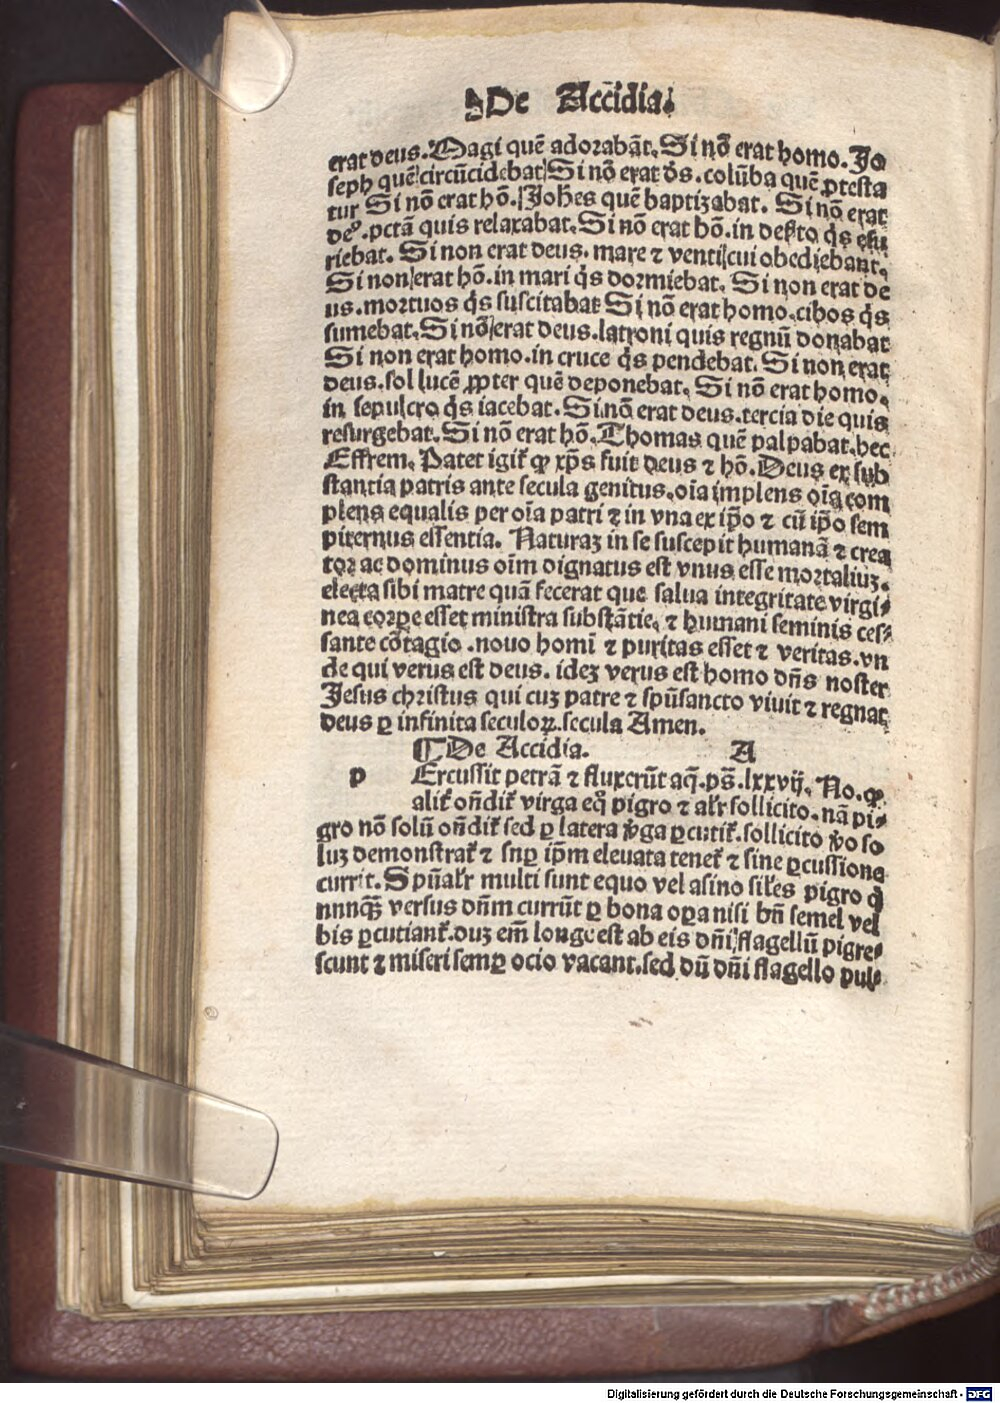 De Accidia.
erat deus. Magi quē adorabāt. Si nō erat homo. Jo
seph quē circūcidebat Si nō erat ds̄. colūba quē ꝓtesta
tur Si nō erat hō. Johēs quē baptizabat. Si nō erat
deꝰ. pctā quis relaxabat. Si nō erat hō. in deſto qͥs esu
riebat. Si non erat deus. mare ⁊ venti cui obediebant.
Si non erat hō. in mari qͥs dormiebat. Si non erat de
us. mortuos qͥs suscitabat Si nō erat homo. cibos qͥs
sumebat. Si nō erat deus. latroni quis regnū donabat
Si non erat homo. in cruce qͥs pendebat. Si non erat
deus. sol lucē ꝓpter quē deponebat. Si nō erat homo.
in sepulcro qͥs iacebat. Si nō erat deus. tercia die quis
resurgebat. Si nō erat hō. Thomas quē palpabat. hec
Effrem. Patet igit᷑ ꝙ xp̄s fuit deus ⁊ hō. Deus ex sub
stantia patris ante secula genitus. oīa implens oīa com
plens equalis per oīa patri ⁊ in vna ex ip̄o ⁊ cū ip̄o sem
piternus essentia. Naturaꝫ in se suscepit humanā ⁊ crea
tor ac dominus oīm dignatus est vnus esse mortaliuꝫ.
electa sibi matre quā fecerat que salua integritate virgi-
nea corꝑe esset ministra substātie. ⁊ humani seminis ces-
sante cōtagio. nouo homī ⁊ puritas esset ⁊ veritas. vn
de qui verus est deus. ideꝫ verus est homo dn̄s noster
Jesus christus qui cuꝫ patre ⁊ spūsancto viuit ⁊ regnat
deus ꝑ infinita seculoꝝ. secula Amen.
¶ De Accidia. A
p Ercussit petrā ⁊ fluxerūt aq̄. ps̄. lxxvij. No. ꝙ
alit᷑ on̄dit᷑ virga eq̊ pigro ⁊ alr̄ sollicito. nā pi-
gro nō solū on̄dit᷑ sed ꝑ latera v̓ga ꝑcutit᷑. sollicito v̓o so
luꝫ demonstrat᷑ ⁊ snꝑ ip̄m eleuata tenet᷑ ⁊ sine ꝑcussione
currit. Spūalr̄ multi sunt equo vel asino siles pigro q̄
nunqꝫ versus dn̄m currūt ꝑ bona oꝑa nisi bn̄ semel vel
bis ꝑcutiant᷑. duꝫ em̄ longe est ab eis dn̄i flagellū pigre-
scunt ⁊ miseri semꝑ ocio vacant. sed dū dn̄i flagello pul-
Digitalisierung gefördert durch die Deutsche Forschungsgemeinschaft - DFG